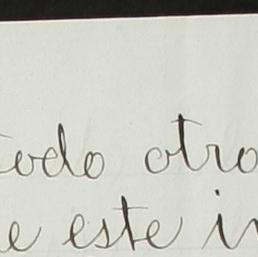 todo otro
e este in